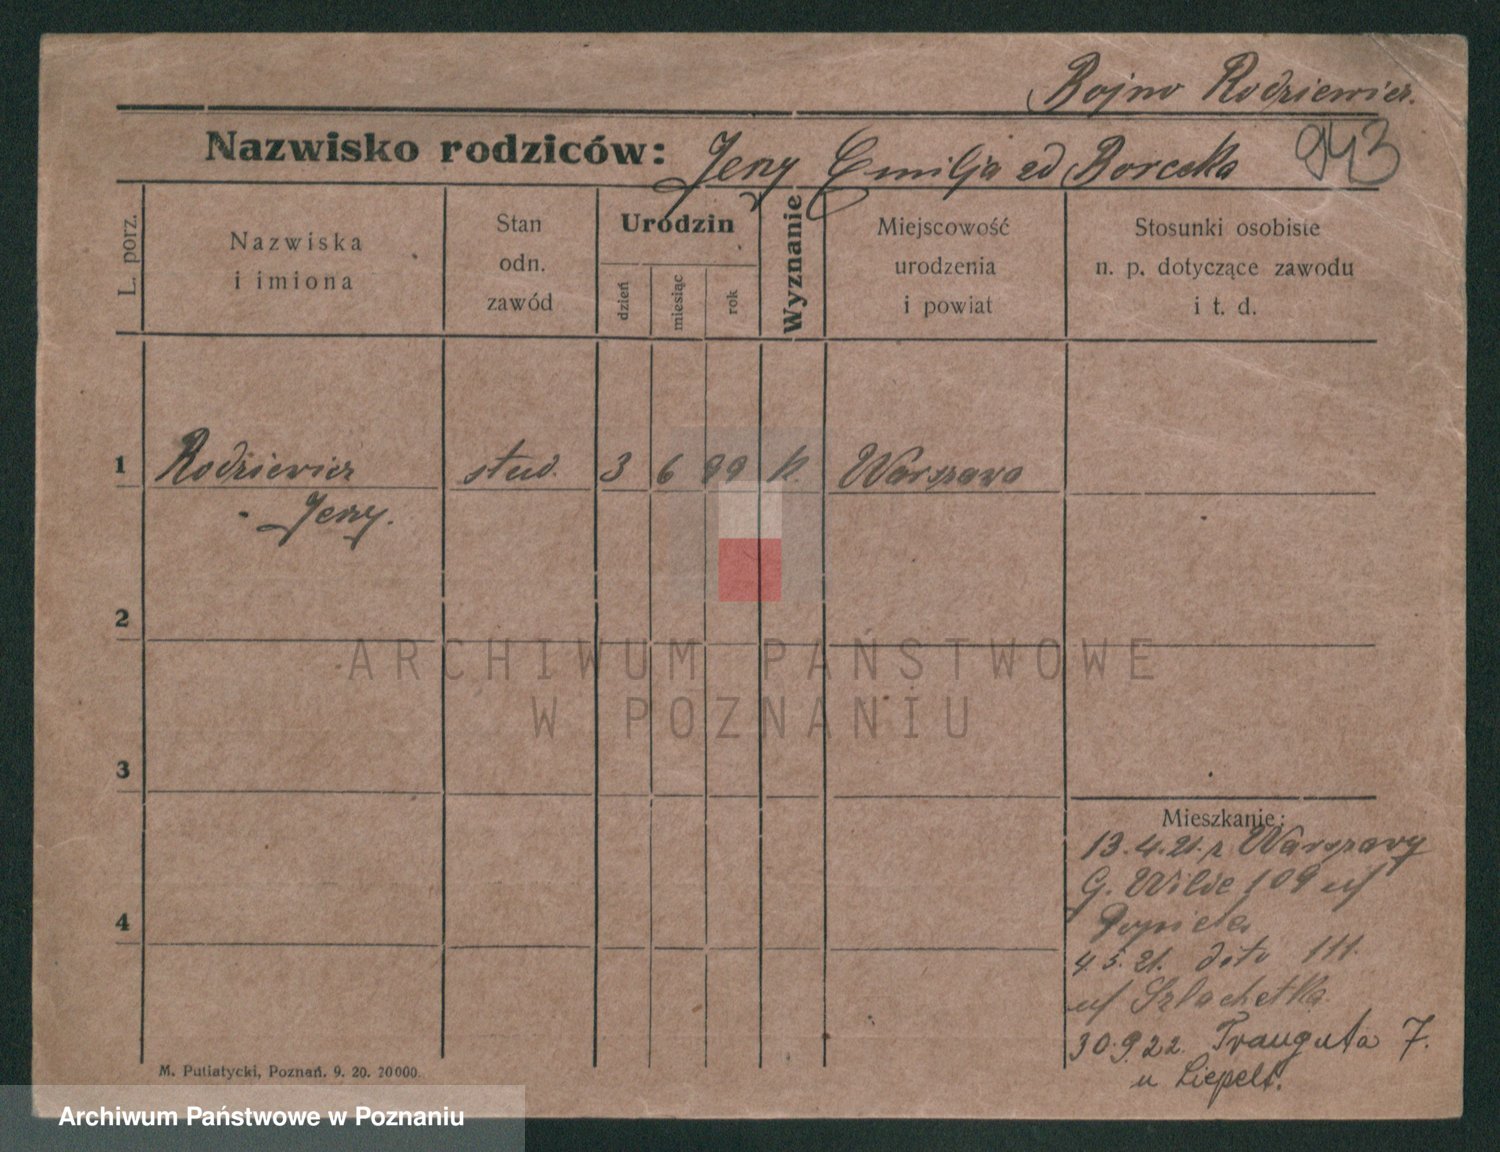 Bojno Rodziewicz.
Nazwisko rodziców: Jerzy Emilja zd Borecka
943
L. porz.
Nazwiska
i imiona
Stan
odn.
zawód
Urodzin
dzień
miesiąc
rok
Wyznanie
Miejscowość
urodzenia
i powiat
Stosunki osobiste
n. p. dotyczące zawodu
i t. d.
1 Rodziewicz stud. 3 6 99 k. Warszawa
- Jerzy.
2
3
4
ARCHIWUM PAŃSTWOWE
W POZNANIU
Mieszkanie:
13.4.21. z Warszawy
G. Wilde 109 u/
Popiela
4 5. 21. dito 111.
u/ Szlachetka
30.9.22. Trauguta 7.
u Liepelt.
M. Putiatycki, Poznań. 9. 20. 20000.
Archiwum Państwowe w Poznaniu